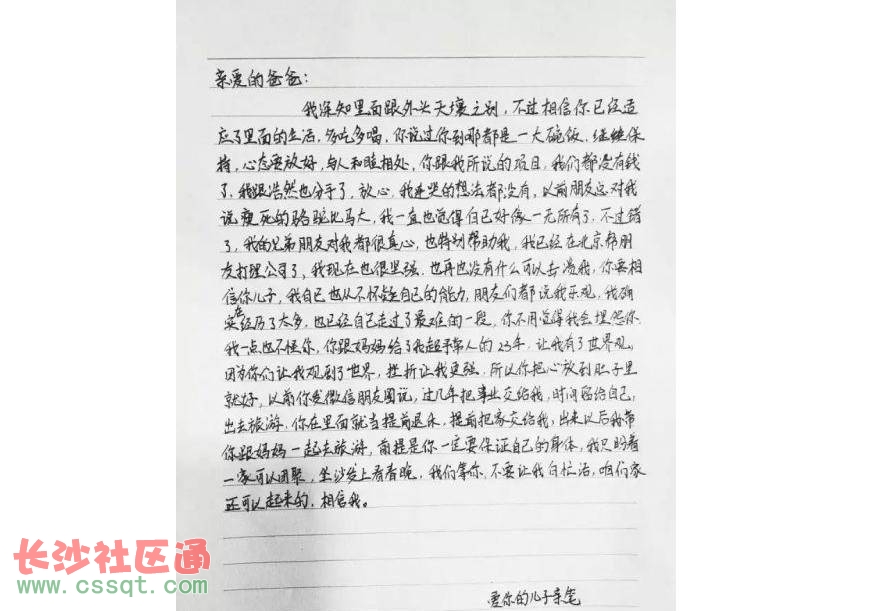 亲爱的爸爸：
我深知里面跟外头天壤之别，不过相信你已经适
应了里面的生活，多吃多喝，你说过你到哪都是一大碗饭，继续保
持，心态要放好，与人和睦相处，你跟我所说的项目，我们都没有钱
了，我跟浩然也分手了，放心，我连哭的想法都没有，以前朋友总对我
说瘦死的骆驼比马大，我一直也觉得自己好像一无所有了，不过错
了，我的兄弟朋友对我都很真心，也特别帮助我，我已经在北京帮朋
友打理公司了，我现在也很坚强，也再也没有什么可以击溃我，你要相
信你儿子，我自己也从不怀疑自己的能力，朋友们都说我乐观，我确
实在经历了太多，也已经自己走过了最难的一段，你不用觉得我会埋怨你，
我一点也不怪你，你跟妈妈给了我超乎常人的23年，让我有了世界观，
因为你们让我观到了世界，挫折让我更强，所以你把心放到肚子里
就好，以前你发微信朋友圈说，过几年把事业交给我，时间留给自己，
出去旅游，你在里面就当提前退休，提前把家交给我，出来以后我带
你跟妈妈一起去旅游，前提是你一定要保证自己的身体，我只盼着
一家可以团聚，坐沙发上看春晚，我们等你，不要让我白忙活，咱们家
还可以起来的，相信我。
爱你的儿子亲笔
长沙社区通
www.cssqt.com